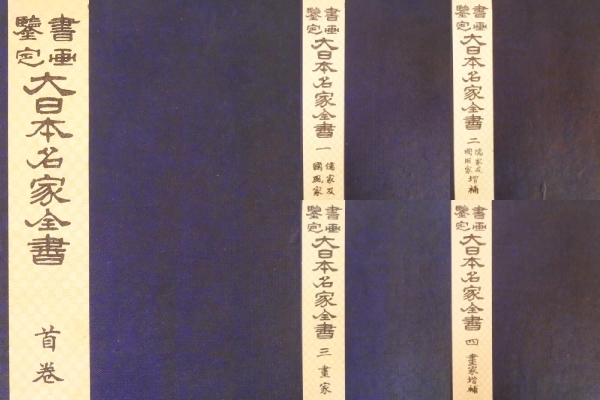 書画
鑒定
大日本名家全書
首卷
書画
鑒定
大日本名家全書
一
儒家及
國風家
書画
鑒定
大日本名家全書
二
儒家及
國風家
增補
書画
鑒定
大日本名家全書
三
畫家
書画
鑒定
大日本名家全書
四
畫家增補